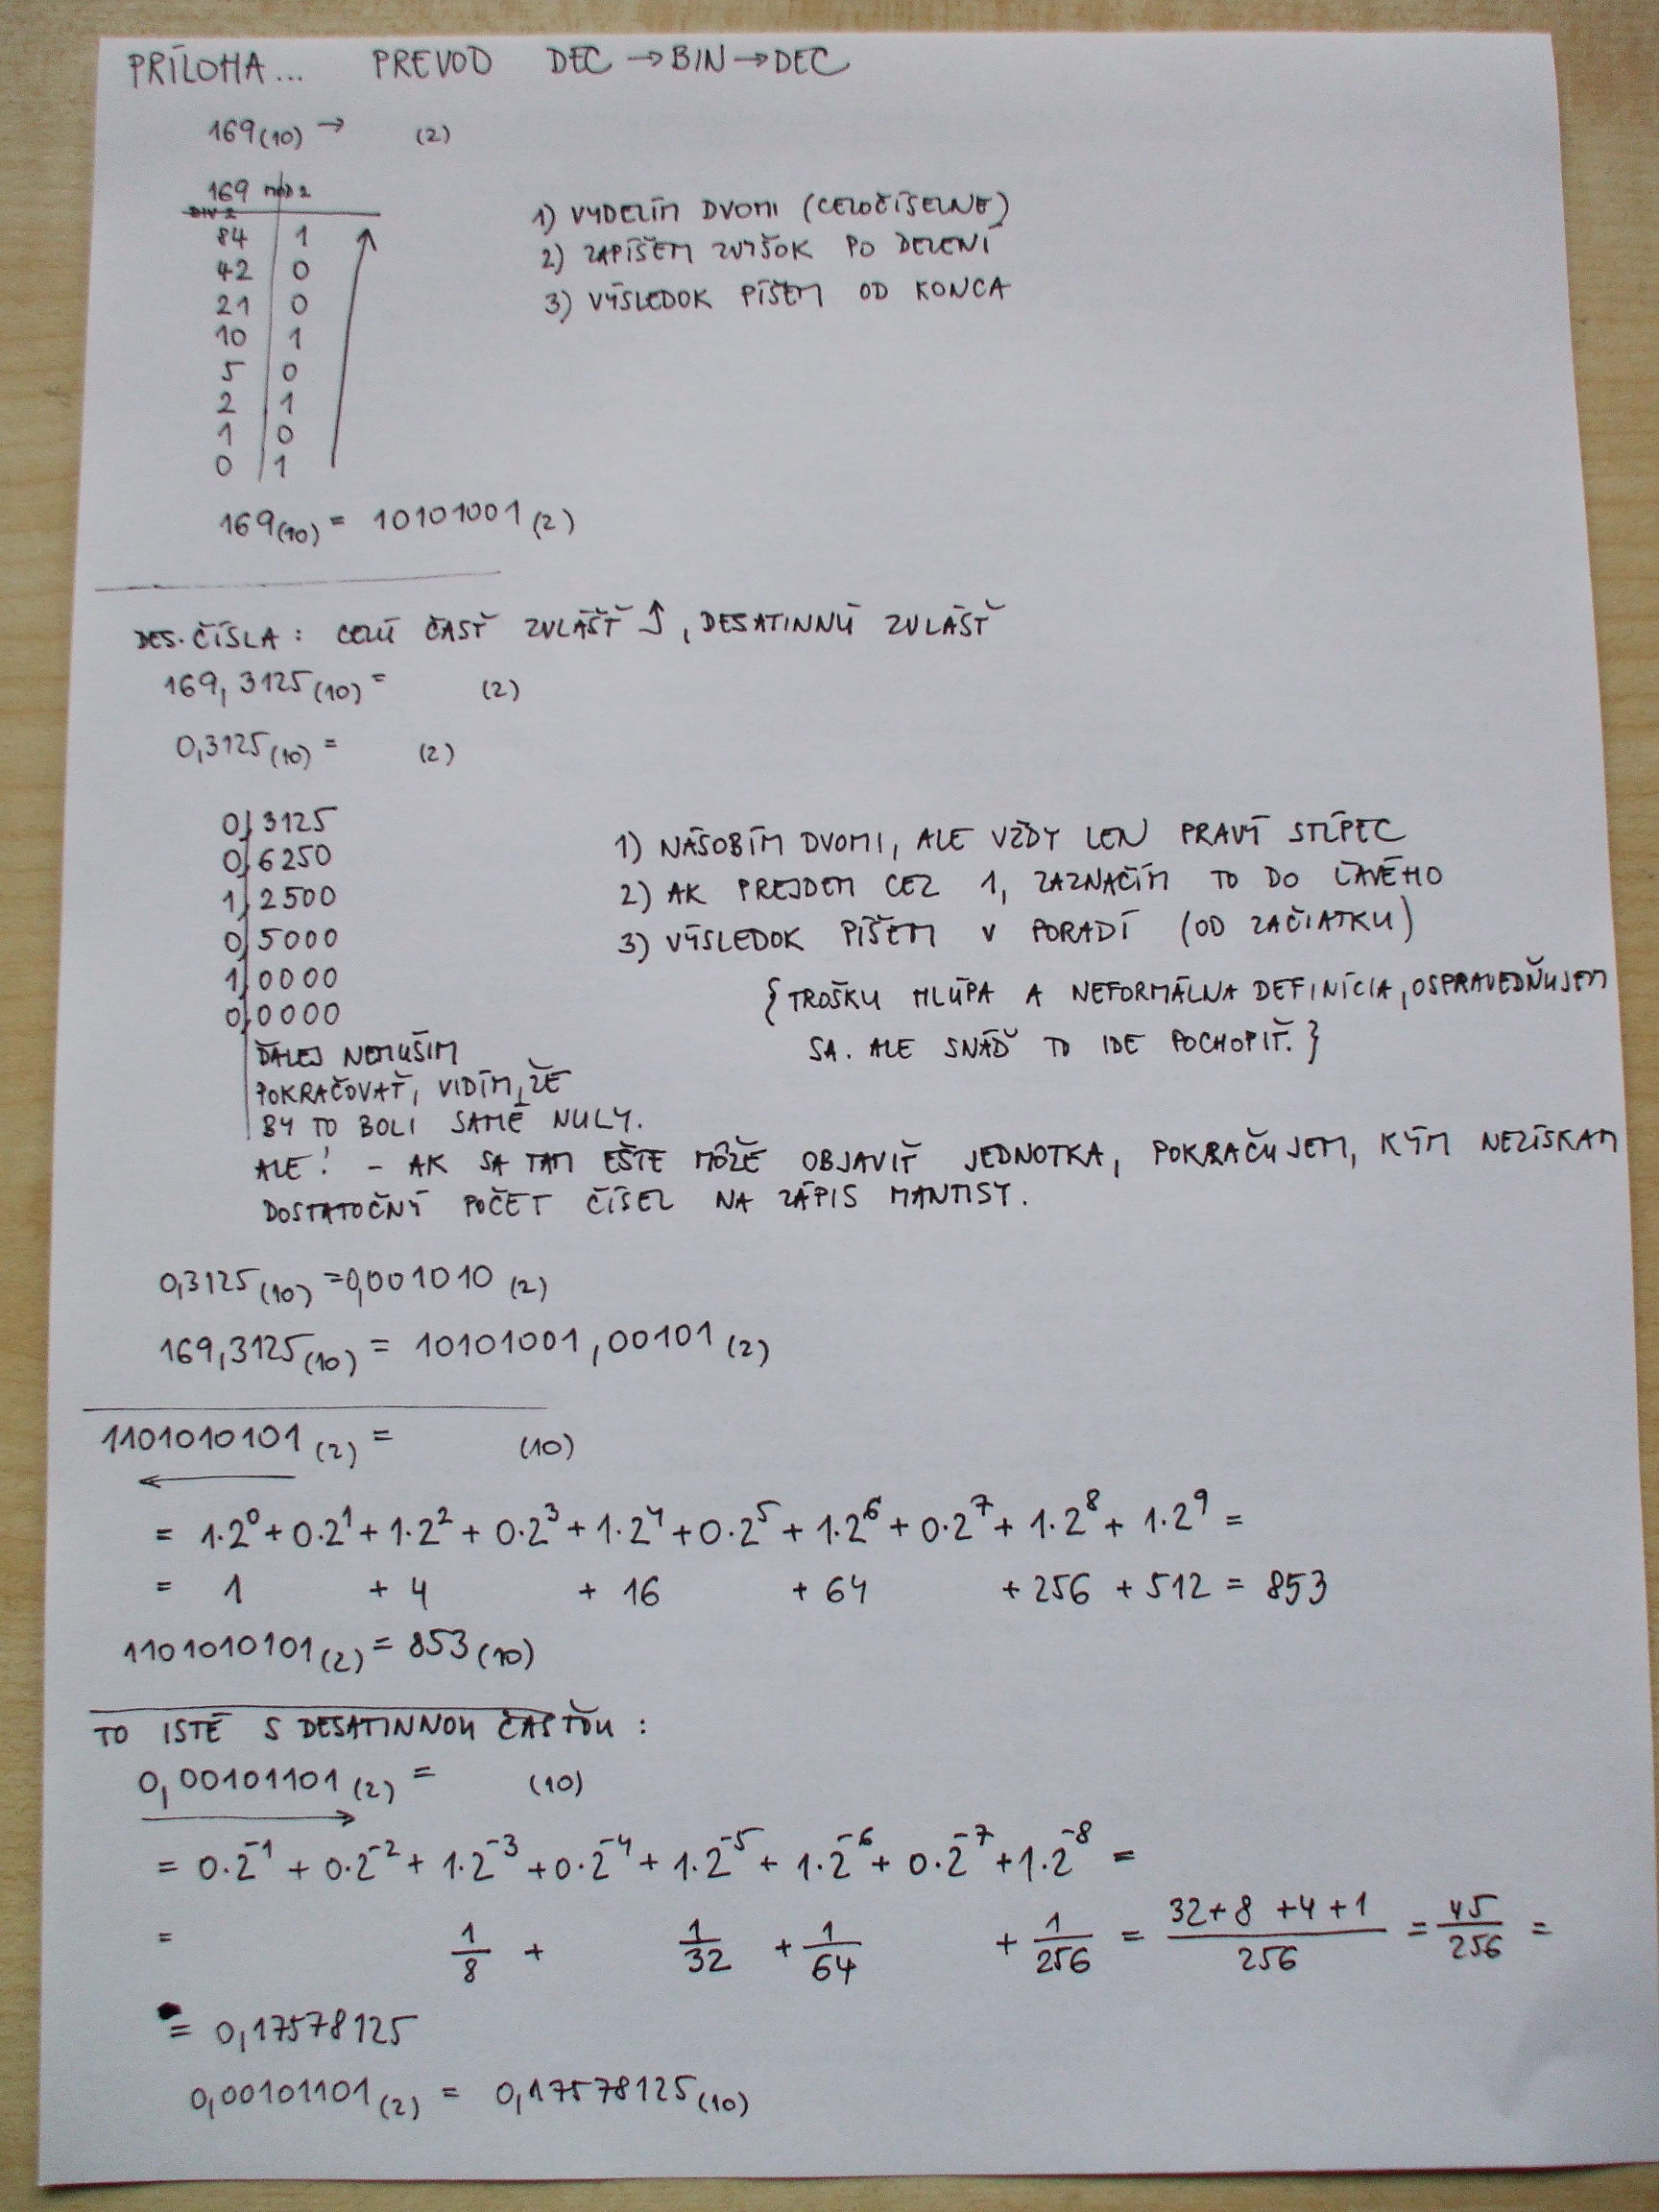 PRÍLOHA... PREVOD DEC → BIN → DEC
169(10) → (2)
169 MOD 2
DIV 2
84 1
42 0
21 0
10 1
5 0
2 1
1 0
0 1
1) VYDELÍM DVOMI (CELOČÍSELNE)
2) ZAPÍŠEM ZVYŠOK PO DELENÍ
3) VÝSLEDOK PÍŠEM OD KONCA
169(10) = 10101001(2)
DES. ČÍSLA: CELÚ ČASŤ ZVLÁŠŤ ↑, DESATINNÚ ZVLÁŠŤ
169,3125(10) = (2)
0,3125(10) = (2)
0,3125
0,6250
1,2500
0,5000
1,0000
0,0000
1) NÁSOBÍM DVOMI, ALE VŽDY LEN PRAVÝ STĹPEC
2) AK PREJDEM CEZ 1, ZAZNAČÍM TO DO ĽAVÉHO
3) VÝSLEDOK PÍŠEM V PORADÍ (OD ZAČIATKU)
{TROŠKU HLÚPA A NEFORMÁLNA DEFINÍCIA, OSPRAVEDŇUJEM
SA. ALE SNÁĎ TO IDE POCHOPIŤ.}
ĎALEJ NEMUSÍM
POKRAČOVAŤ, VIDÍM, ŽE
BY TO BOLI SAMÉ NULY.
ALE! - AK SA TAM EŠTE MÔŽE OBJAVIŤ JEDNOTKA, POKRAČUJEM, KÝM NEZÍSKAM
DOSTATOČNÝ POČET ČÍSEL NA ZÁPIS MANTISY.
0,3125(10) = 0,001010(2)
169,3125(10) = 10101001,00101(2)
1101010101(2) = (10)
= 1·2⁰ + 0·2¹ + 1·2² + 0·2³ + 1·2⁴ + 0·2⁵ + 1·2⁶ + 0·2⁷ + 1·2⁸ + 1·2⁹ =
= 1 + 4 + 16 + 64 + 256 + 512 = 853
1101010101(2) = 853(10)
TO ISTÉ S DESATINNOU ČASŤOU:
0,00101101(2) = (10)
= 0·2⁻¹ + 0·2⁻² + 1·2⁻³ + 0·2⁻⁴ + 1·2⁻⁵ + 1·2⁻⁶ + 0·2⁻⁷ + 1·2⁻⁸ =
= 1/8 + 1/32 + 1/64 + 1/256 = 32+8+4+1/256 = 45/256 =
= 0,17578125
0,00101101(2) = 0,17578125(10)